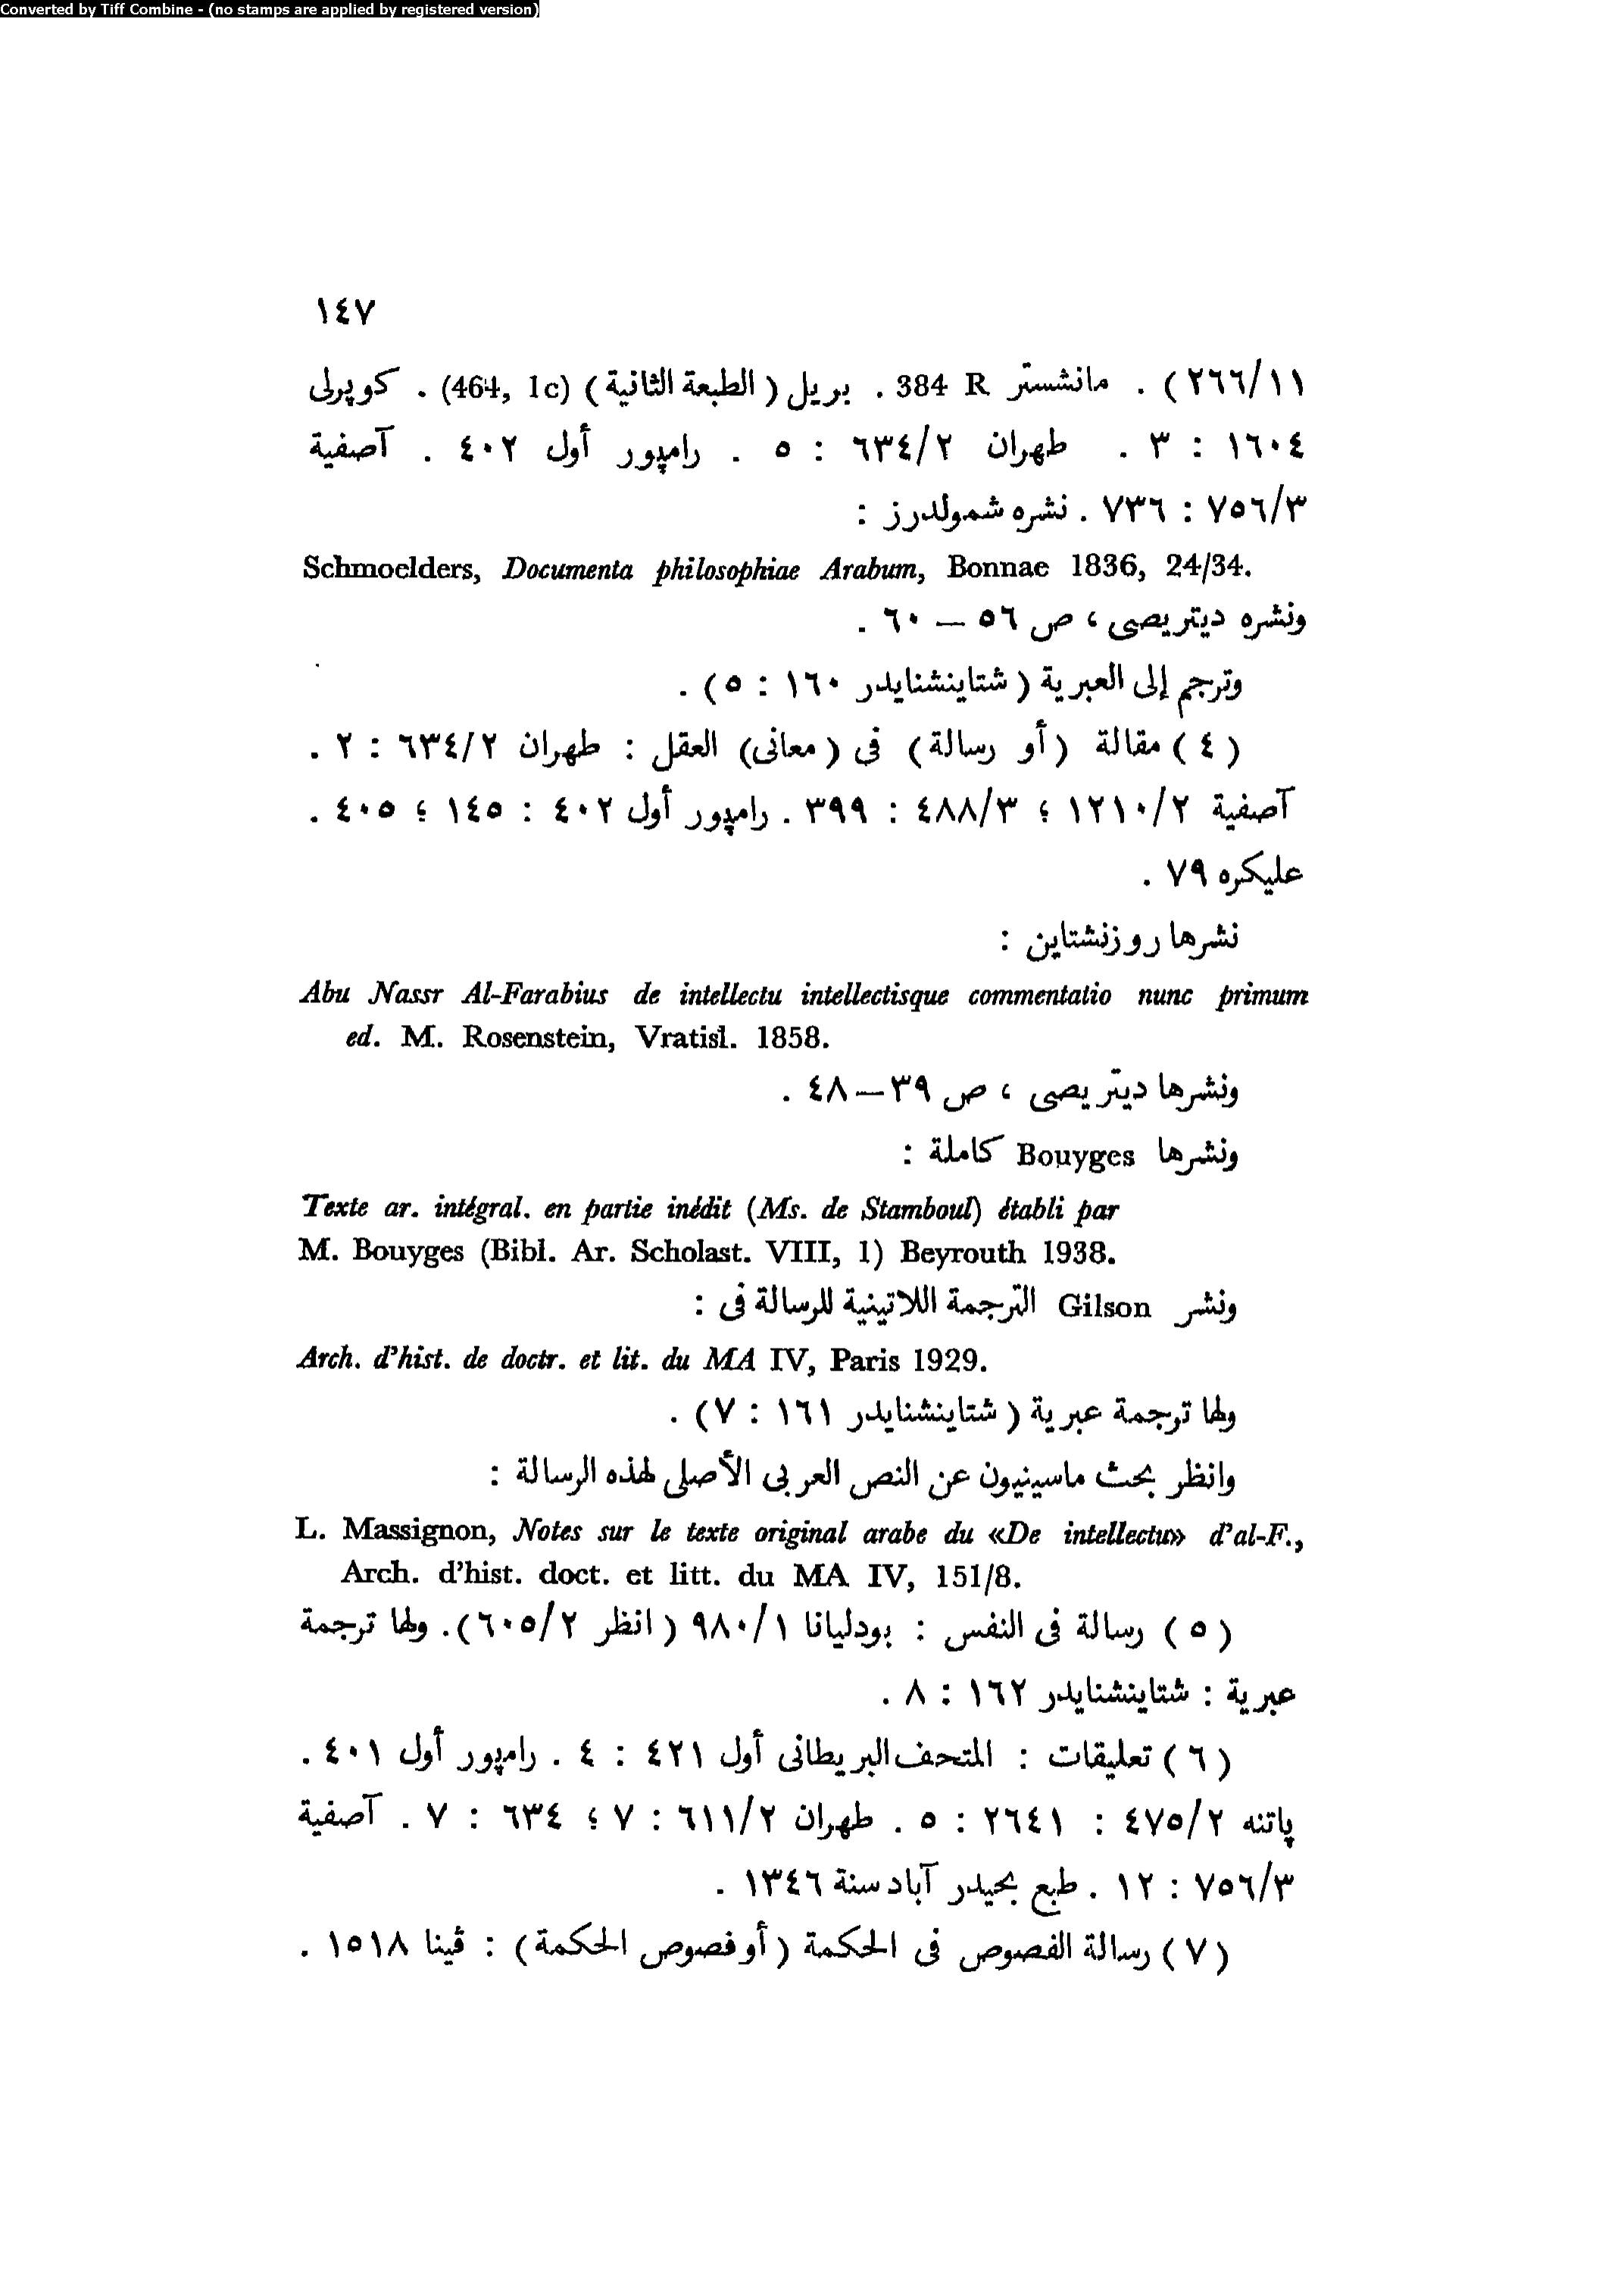 Converted by Tiff Combine - (no stamps are applied by registered version)
١٤٧
٢٦٦/١١) . مانشستر 384 R . بريل ( الطبعة الثانية ) (464, 1c) . كوپرلى
١٦٠٤ : ٣ . طهران ٦٣٤/٢ : ٥ . رامپور أول ٤٠٢ . آصفية
٧٥٦/٣ : ٧٣٦ . نشره شمولدرز :
Schmoelders, Documenta philosophiae Arabum, Bonnae 1836, 24/34.
ونشره ديتريصى ، ص ٥٦ – ٦٠ .
وترجم إلى العبرية ( شتاينشنايدر ١٦٠ : ٥) .
( ٤ ) مقالة (أو رسالة) فى ( معانى) العقل : طهران ٦٣٤/٢ : ٢ .
آصفية ١٢١٠/٢ ؛ ٤٨٨/٣ : ٣٩٩ . رامپور أول ٤٠٢ : ١٤٥ ؛ ٤٠٥ .
عليكره ٧٩ .
نشرها روزنشتاين :
Abu Nassr Al-Farabius de intellectu intellectisque commentatio nunc primum
ed. M. Rosenstein, Vratisl. 1858.
ونشرها ديتريصى ، ص ٣٩–٤٨ .
ونشرها Bouyges كاملة :
Texte ar. intégral. en partie inédit (Ms. de Stamboul) établi par
M. Bouyges (Bibl. Ar. Scholast. VIII, 1) Beyrouth 1938.
ونشر Gilson الترجمة اللاتينية للرسالة فى :
Arch. d'hist. de doctr. et lit. du MA IV, Paris 1929.
ولها ترجمة عبرية ( شتاينشنايدر ١٦١ : ٧) .
وانظر بحث ماسينيون عن النص العربى الأصلى لهذه الرسالة :
L. Massignon, Notes sur le texte original arabe du «De intellectu» d'al-F.,
Arch. d'hist. doct. et litt. du MA IV, 151/8.
( ٥ ) رسالة فى النفس : بودليانا ٩٨٠/١ ( انظر ٦٠٥/٢) . ولها ترجمة
عبرية : شتاينشنايدر ١٦٢ : ٨ .
( ٦ ) تعليقات : المتحف البريطانى أول ٤٢١ : ٤ . رامپور أول ٤٠١ .
پاتنه ٤٧٥/٢ : ٢٦٤١ : ٥ . طهران ٦١١/٢ : ٧ ؛ ٦٣٤ : ٧ . آصفية
٧٥٦/٣ : ١٢ . طبع بحيدر آباد سنة ١٣٤٦ .
( ٧ ) رسالة الفصوص فى الحكمة ( أو فصوص الحكمة ) : ڤينا ١٥١٨ .